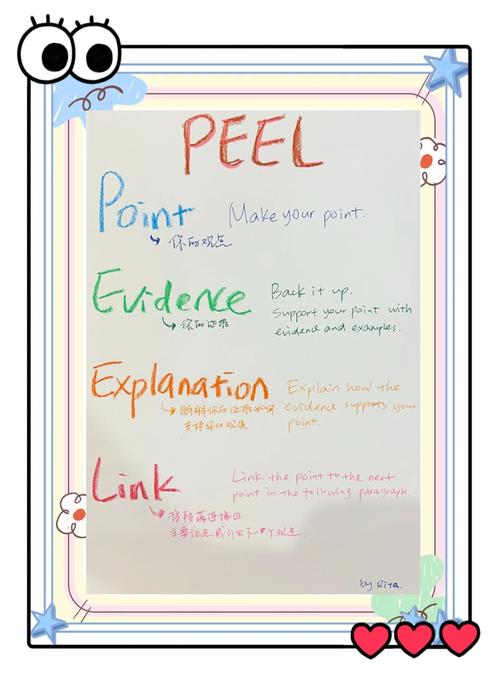 PEEL
Point
Make your point.
你的观点
Evidence
Back it up.
Support your point with
evidence and examples.
你的证据
Explanation
Explain how the
evidence supports your
point.
解释你的证据如何
支持你的观点
Link
Link the point to the next
point in the following paragraph.
将段落连接回
主要论点或引出下一个观点.
by Rita.